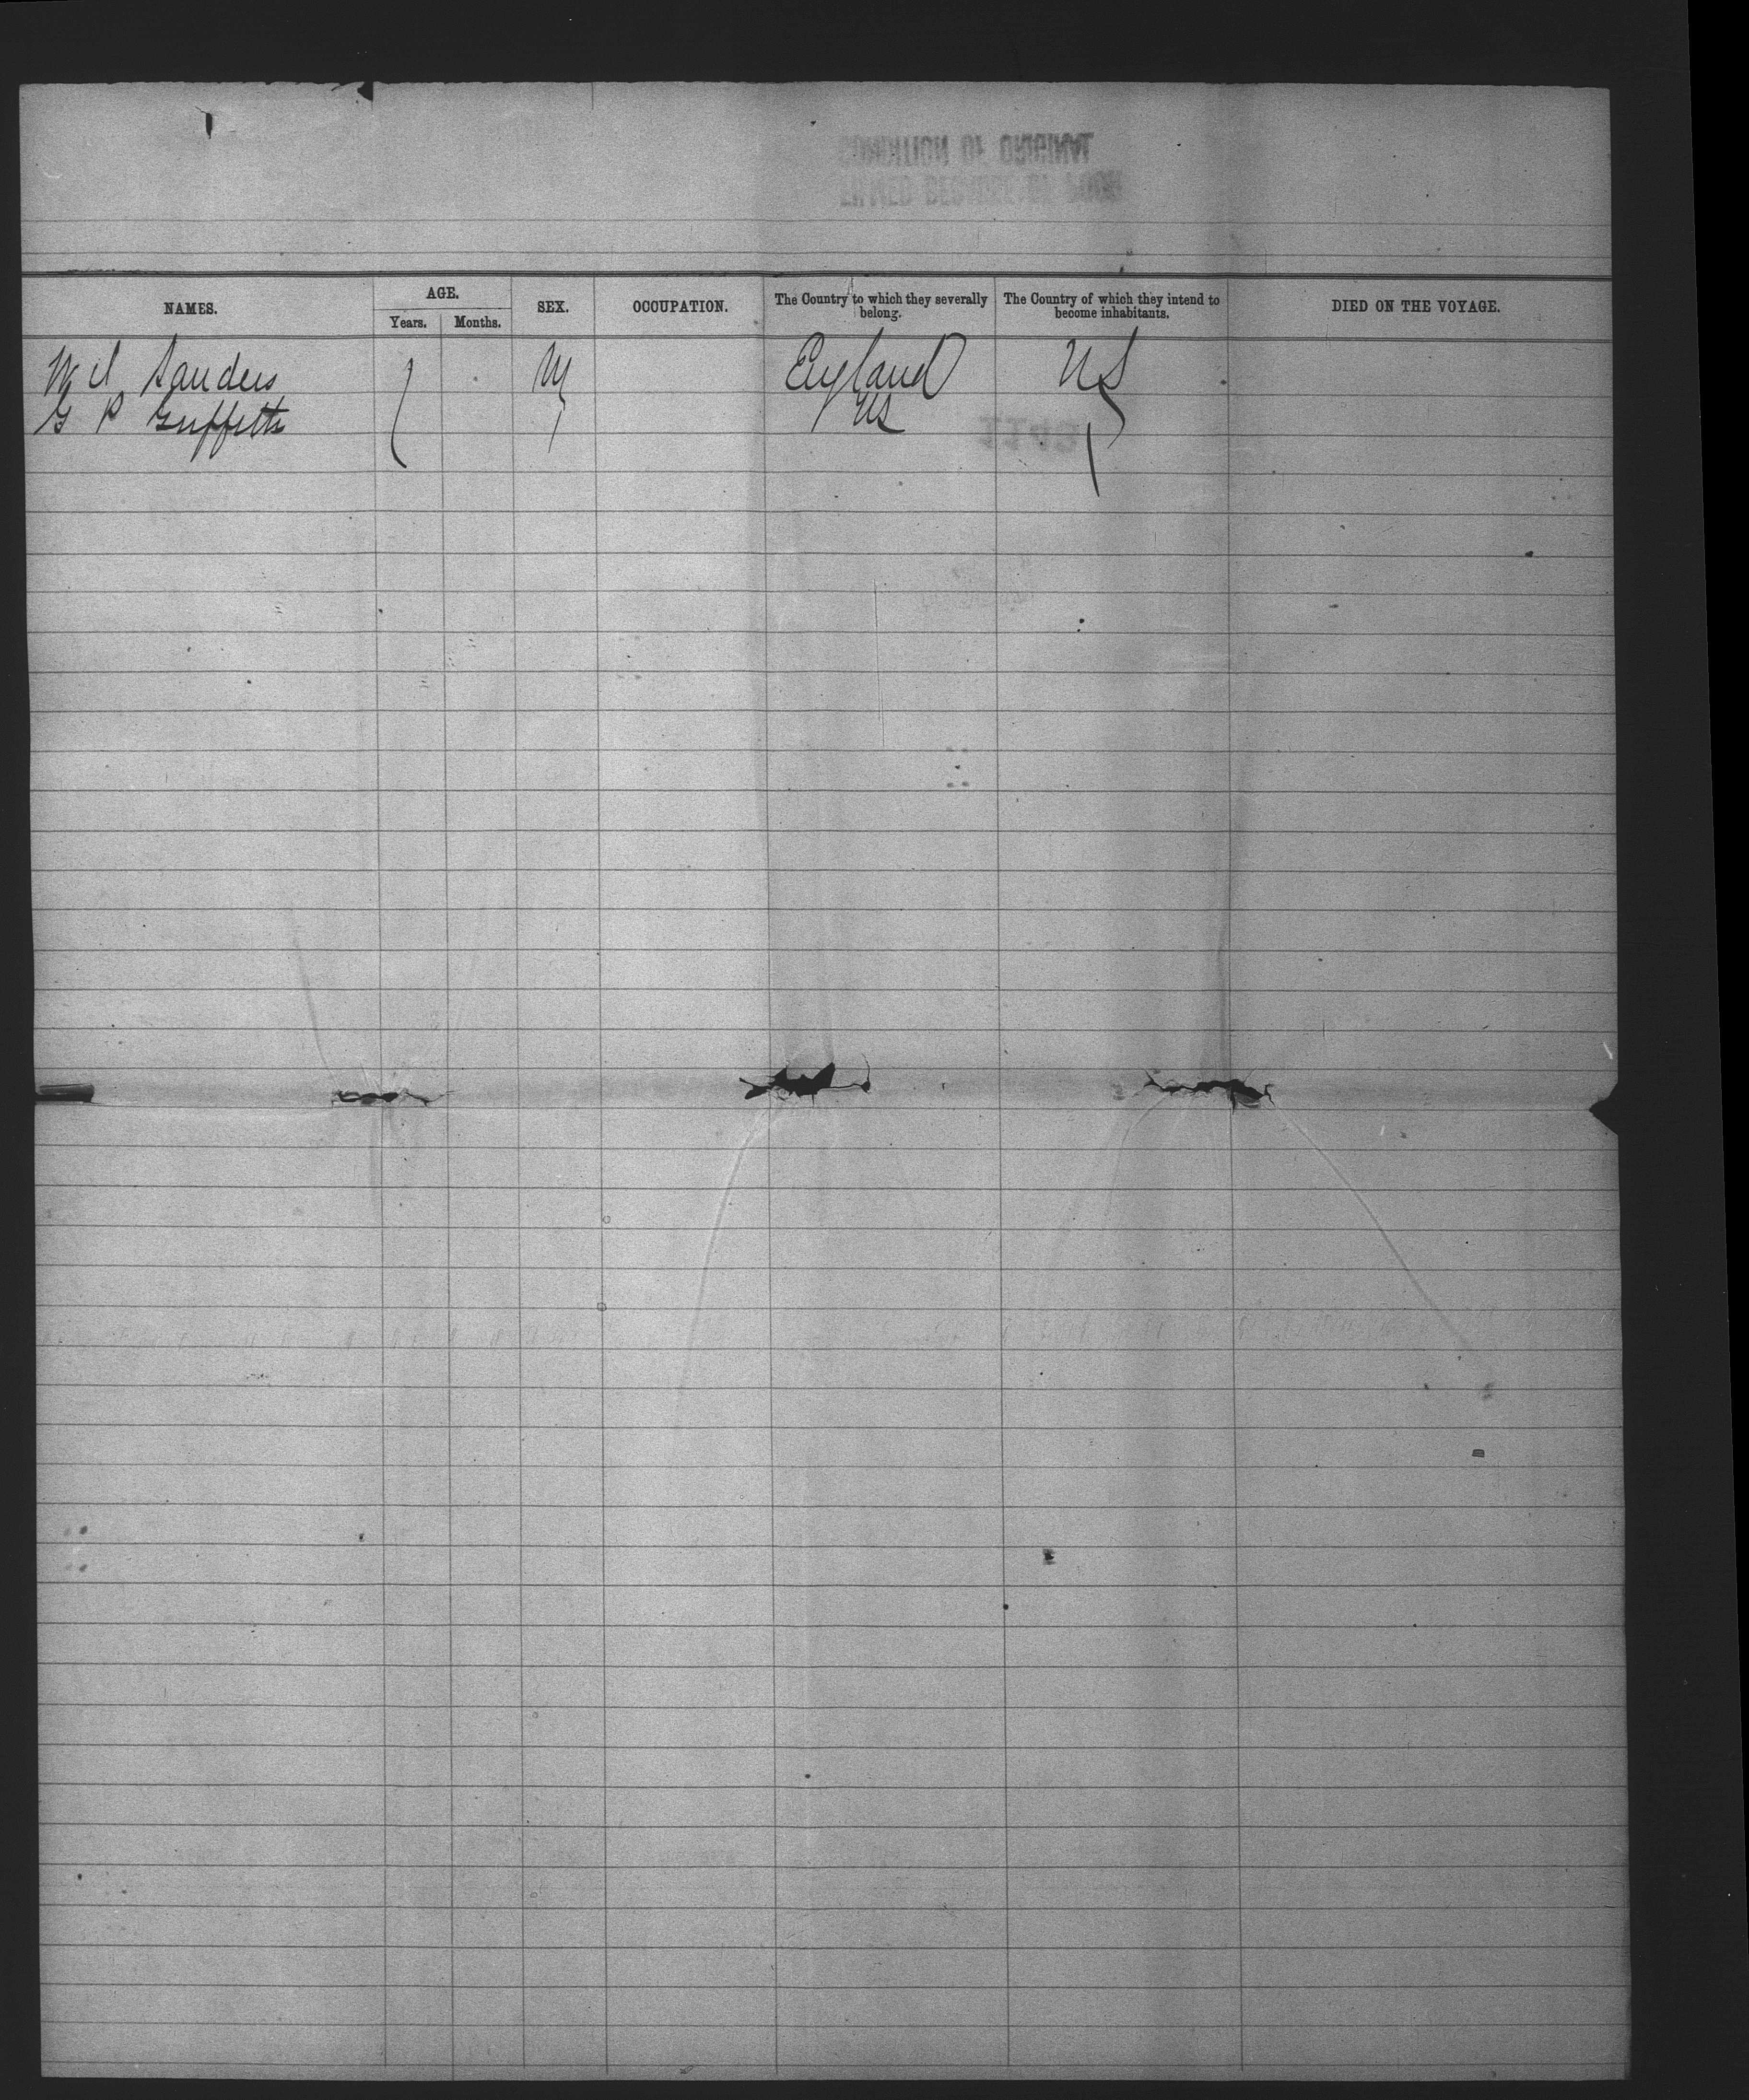 CONDITION OF ORIGINAL
NAMES. AGE. SEX. OCCUPATION. The Country to which they severally belong. The Country of which they intend to become inhabitants. DIED ON THE VOYAGE.
Years. Months.
Sanders M England US
G R Griffith US